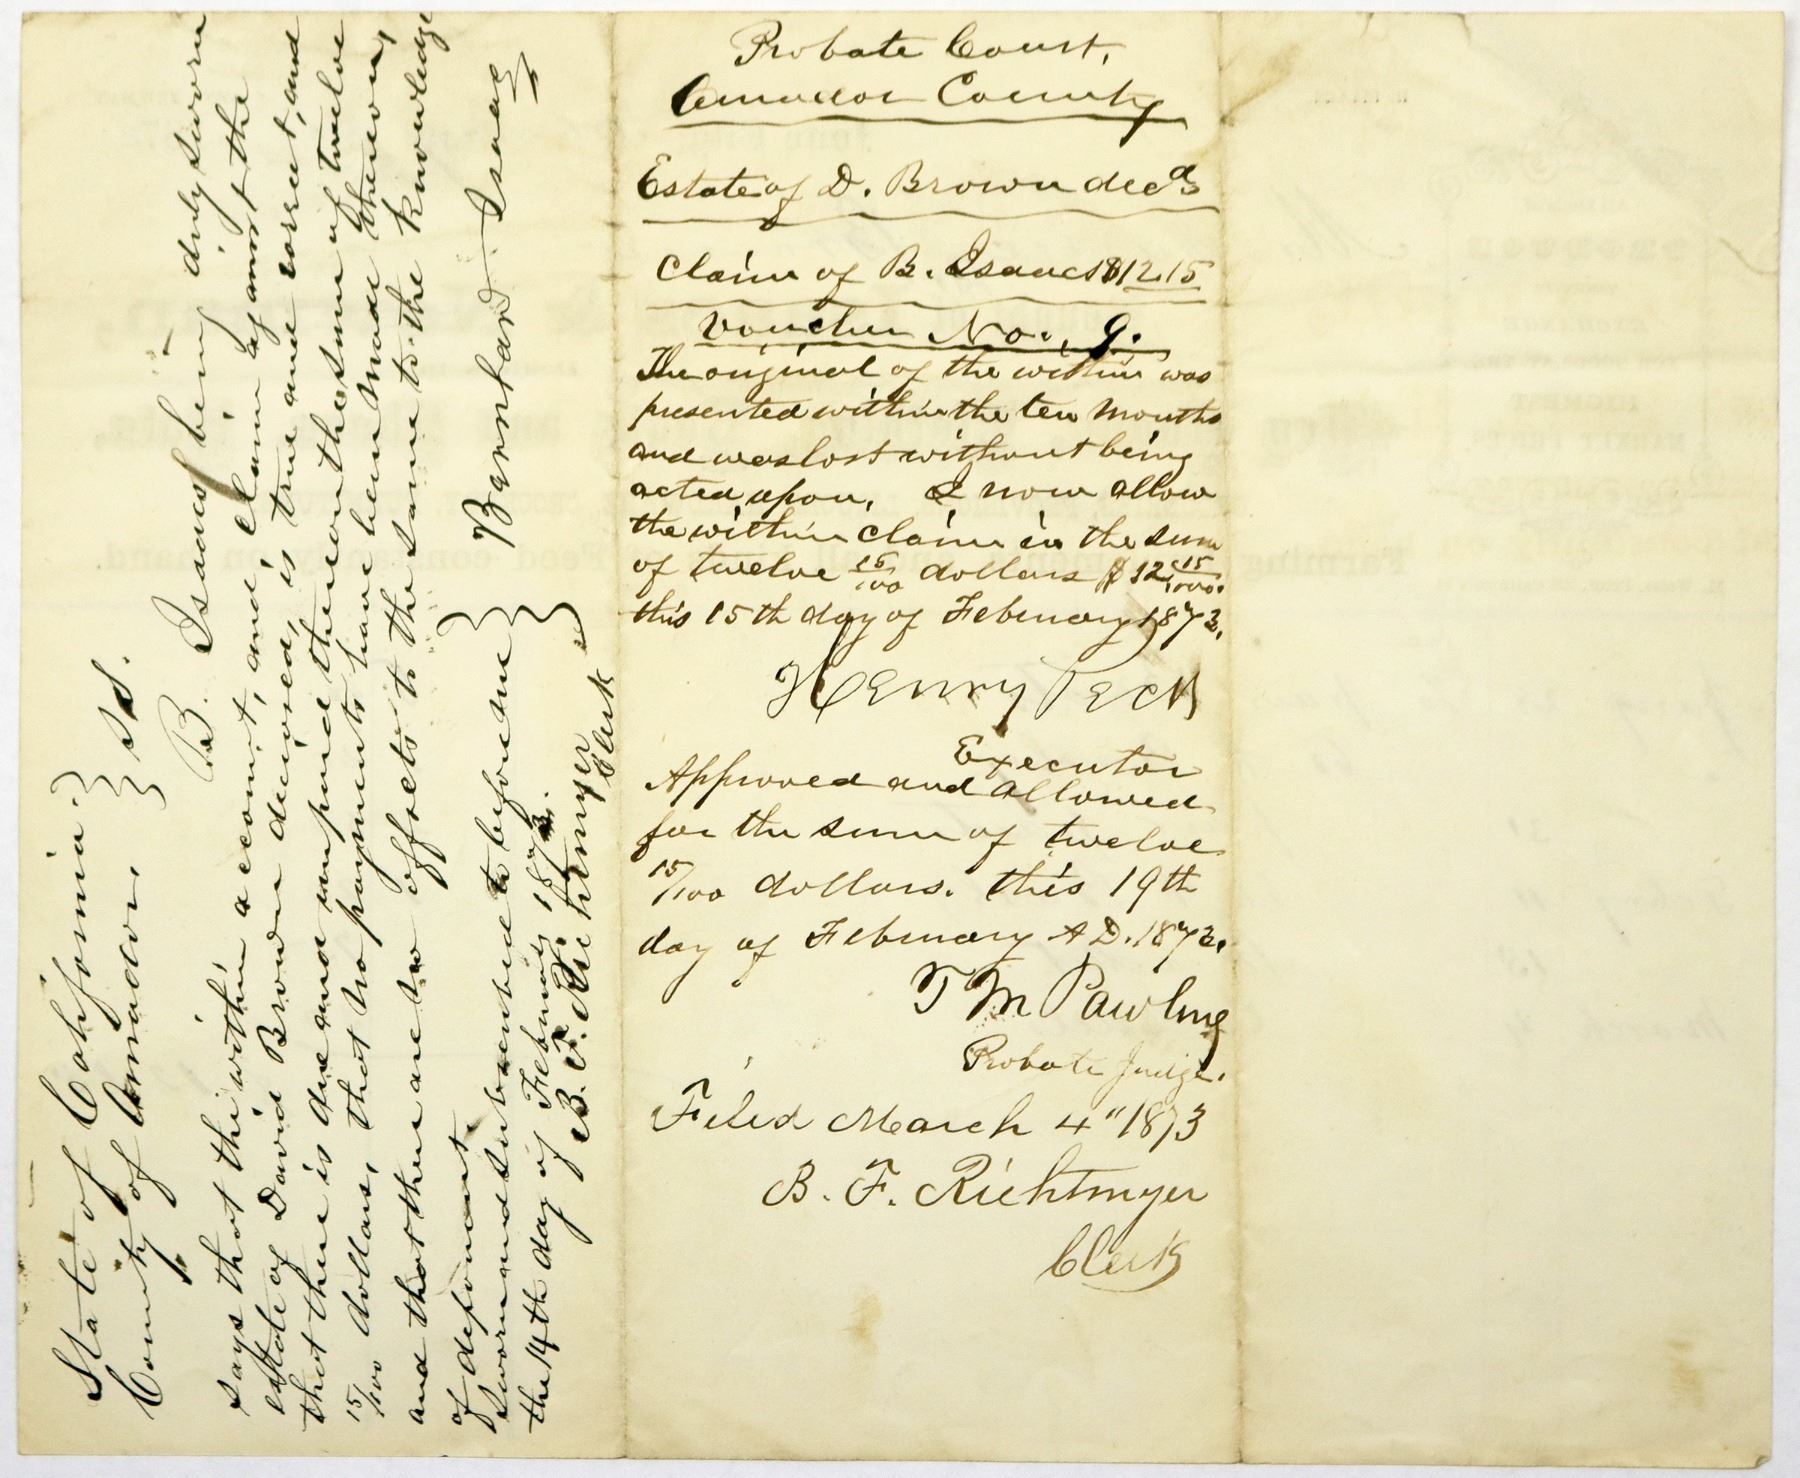 State of California }
County of Amador } SS.
B. Isaacs being duly sworn
says that the within account, and, claim against the
estate of David Brown deceased, is true and correct, and
that there is due and unpaid thereon the sum of twelve
15/100 dollars, that no payments have been made thereon,
and that there are no offsets to the same to the knowledge
of deponent.
Sworn and subscribed to before me }
the 14th day of February 1873. }
Bernhard Isaacs
B. F. Richtmyer
Clerk
Probate Court,
Amador County
Estate of D. Brown decd
Claim of B. Isaacs $12.15
Voucher No. 9.
The original of the within was
presented within the ten months
and was lost without being
acted upon, I now allow
the within claim in the sum
of twelve 15/100 dollars $12 15/100.
this 15th day of February 1873.
Henry Peck
Executor
Approved and allowed
for the sum of twelve
15/100 dollars. this 19th
day of February A D. 1873.
T M Pawling
Probate Judge.
Filed March 4" 1873
B. F. Richtmyer
Clerk